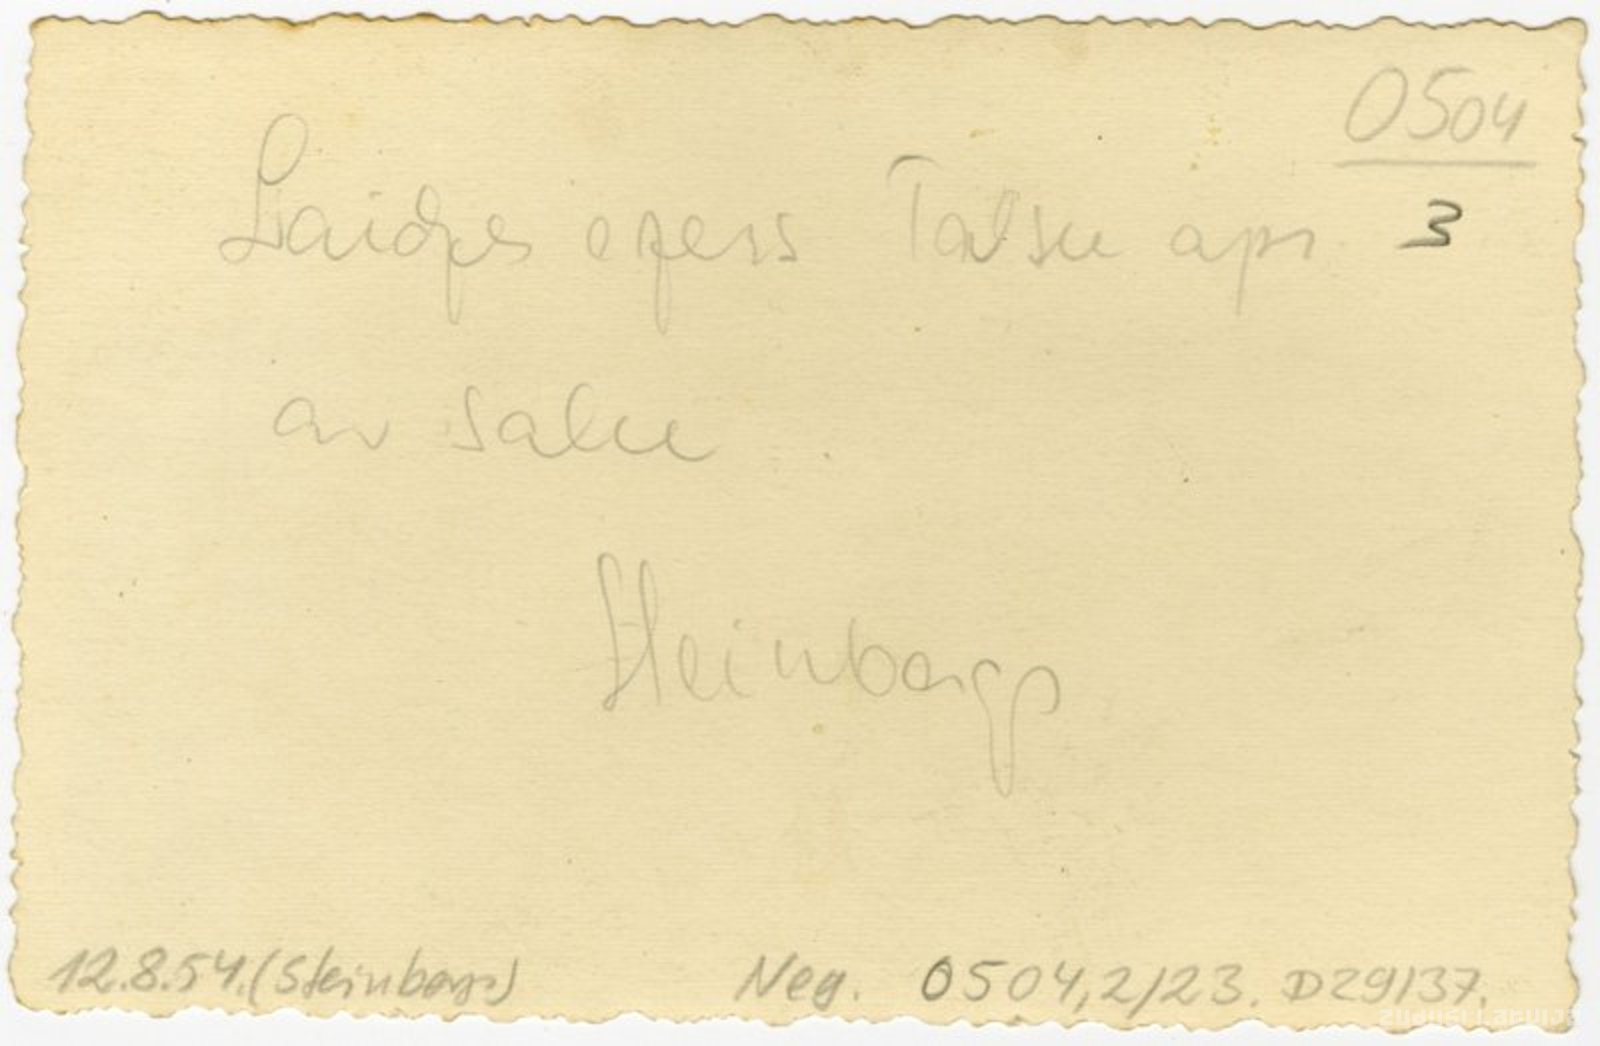 0504
3
Laidzes ezers Talsu apr
ar salu
Steinbergs
12.8.54. (Steinbergs)
Neg. 0504,2/23. D29137.
zudusilatvija